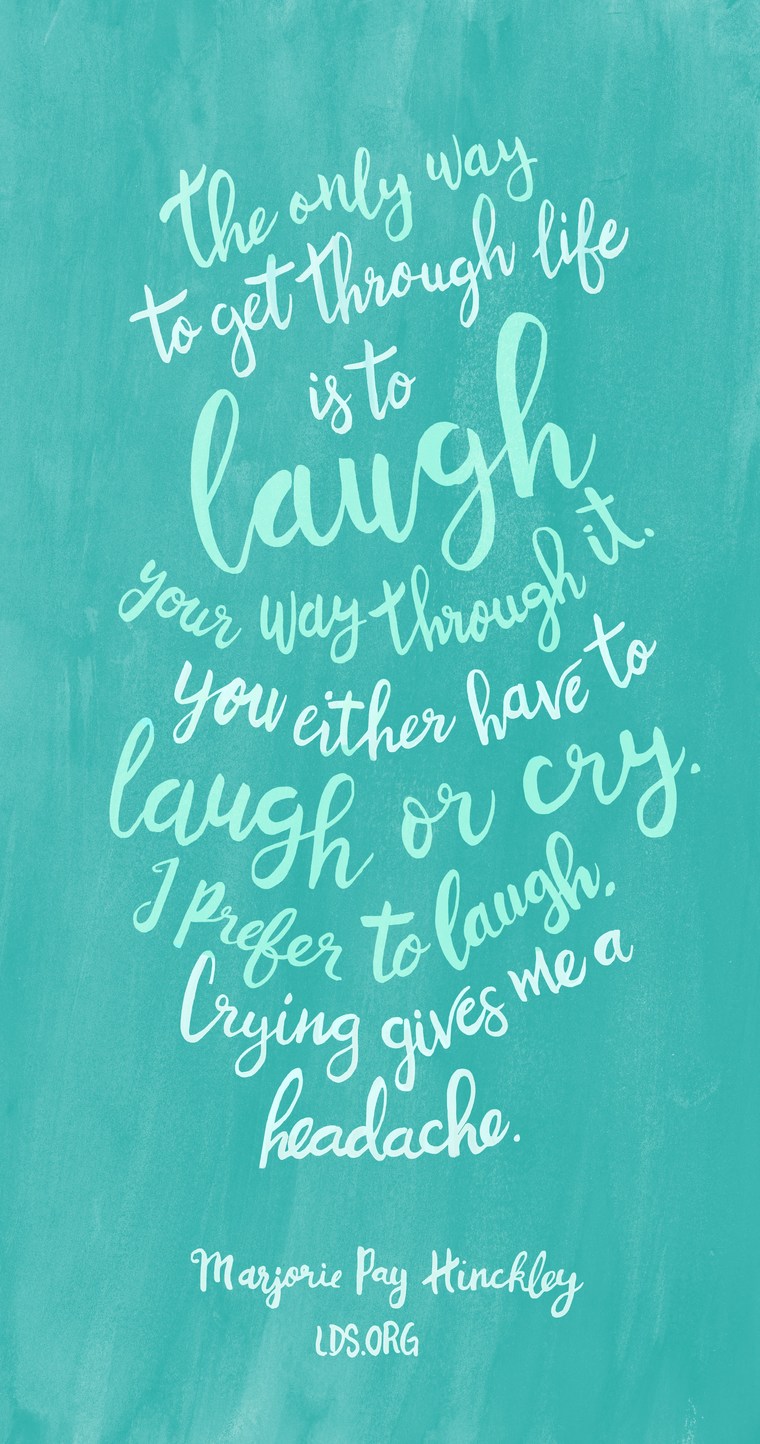 the only way
to get through life
is to
laugh
your way through it.
you either have to
laugh or cry.
I prefer to laugh.
Crying gives me a
headache.
Marjorie Pay Hinckley
LDS.ORG